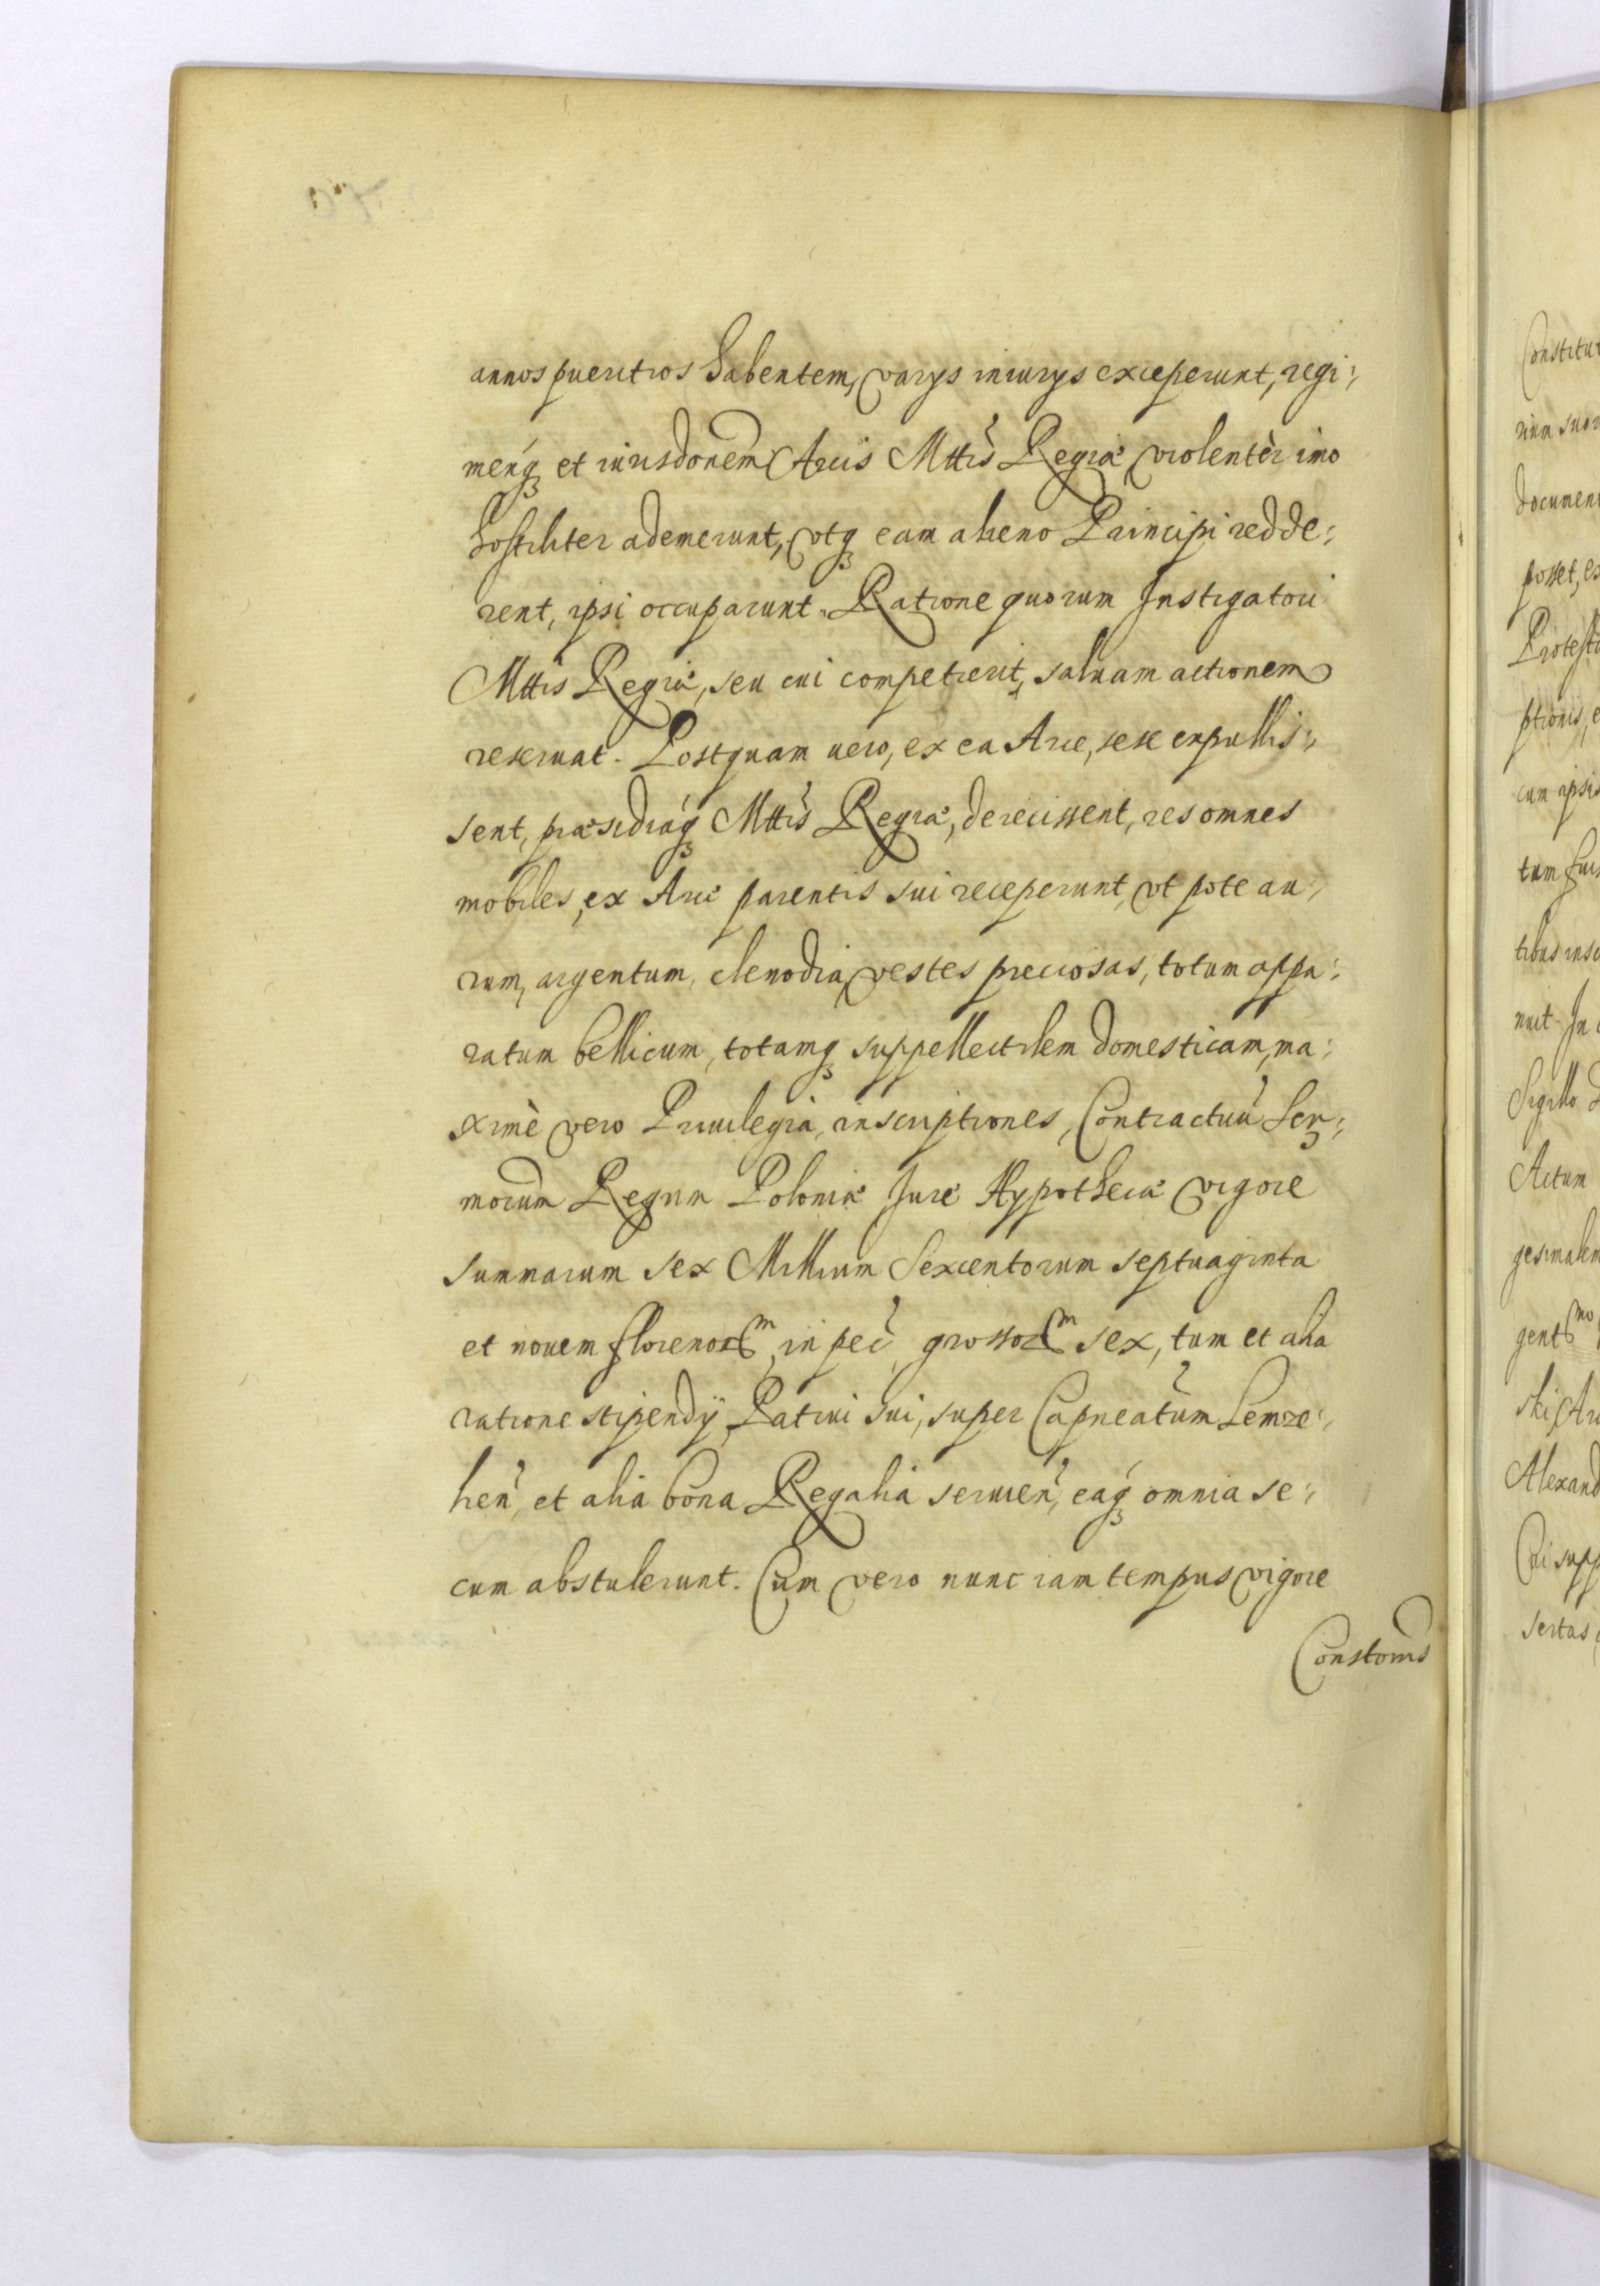 annos pueritios habentem, varys iniurys exceperunt, regi:,
menq́; et iurisdonem Arcis Mttis Regiæ violentèr imo
hostiliter ademerunt, vtq; eam alieno Principi redde:,
rent, ipsi occuparunt. Ratione quorum Instigatori
Mttis Regiæ, seu cui competierit, saluam actionem
reseruat. Postquam uero, ex ea Arce, sese expullis:,
sent, præsidiaq́; Mttis Regiæ, derecissent, res omnes
mobiles, ex Arce parentis sui receperunt, vt pote au:,
rum, argentum, clenodia, vestes preciosas, totum appa:,
ratum bellicum, totamq; suppellectilem domesticam, ma:,
ximè vero Priuilegia, inscriptiones, Contractuũ Ser:,
morum Regum Poloniæ Jure Hypothecæ vigore
summarum sex Millium Sexcentorum septuaginta
et nouem florenorm, in pec̃, grossorm sex, tum et alia
ratione stipendÿ Patrui sui, super Capneatum Lemze:,
hen̄, et alia bona Regalia seruien̄, eaq́; omnia se:,
cum abstulerunt. Cum vero nunc iam tempus vigore
Constonis
Constitu
documen
posset, ex
Protest
ptionis, e
cum ipsis
tum fui
tibus ins
nuit. In
Sigillo
Actum
gesimalem
gentmo
ski Ar
Alexand
Cui supp
sertas,